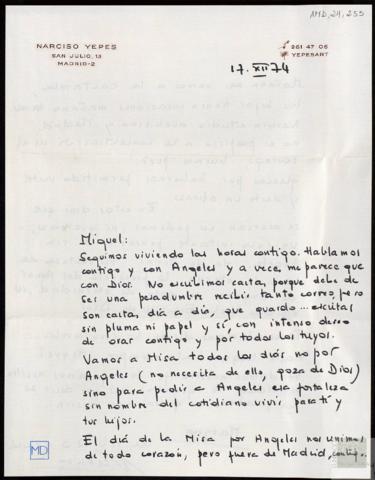 AMD, 24, 255
NARCISO YEPES
SAN JULIO, 13
MADRID-2
261 47 06
YEPESART
17. XII 74
Miguel:
Seguimos viviendo las horas contigo. Hablamos
contigo y con Angeles y a veces me parece que
con Dios. No escribimos carta, porque debe de
ser una pesadumbre recibir tanto correo, pero
son cartas, día a día, que guardo... escritas
sin pluma ni papel y sí, con intenso deseo
de orar contigo y por todos los tuyos.
Vamos a Misa todos los días no por
Angeles (no necesita de ello, goza de Dios)
sino para pedir a Angeles esa fortaleza
sin nombre del cotidiano vivir para tí y
tus hijos.
El día de la Misa por Angeles nos unimos
de todo corazón, pero fuera de Madrid, contigo.
MD